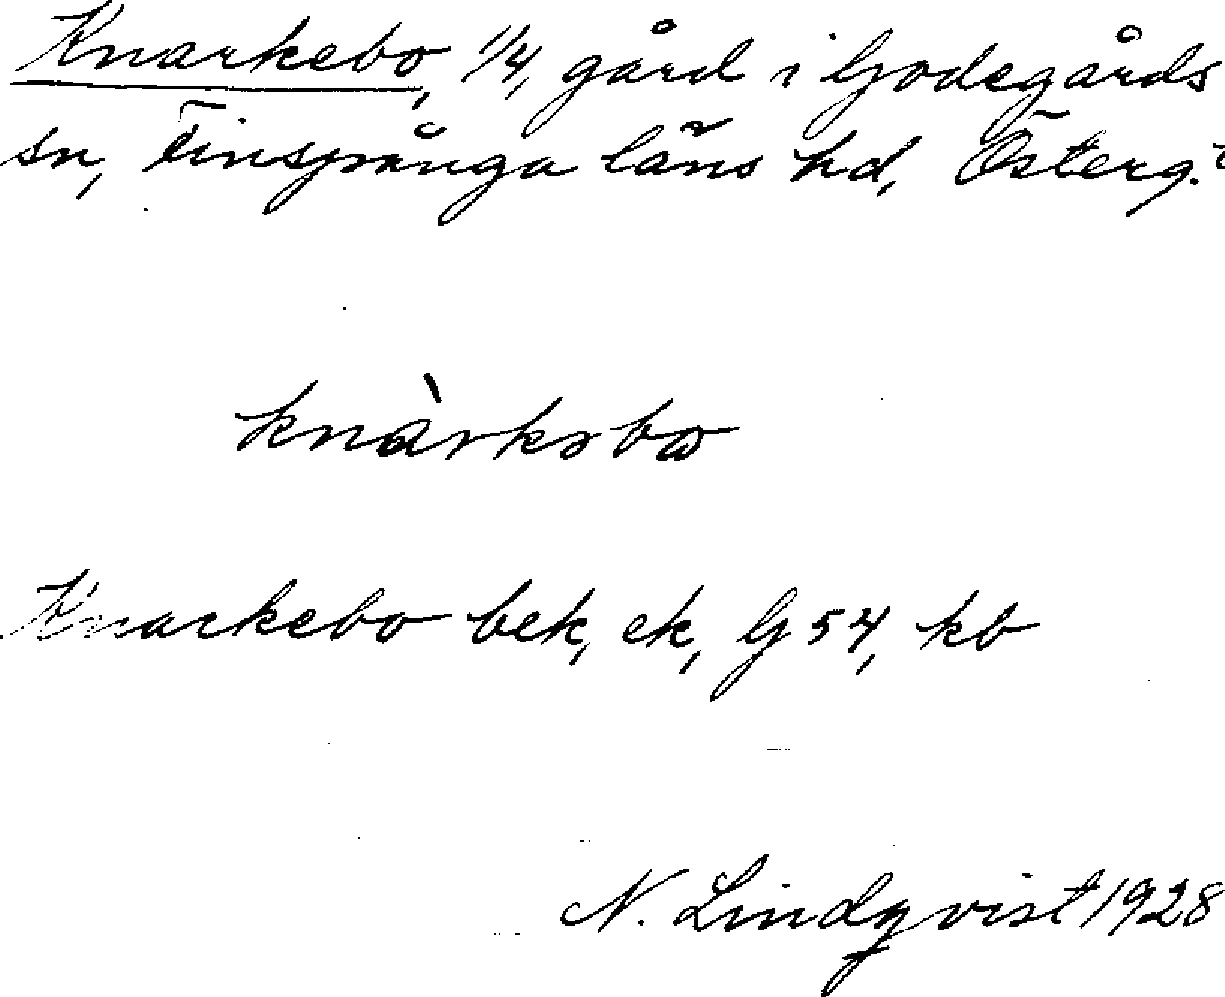 Knarkebo, 1/4, gård i Godegårds
sn, Finspånga läns hd, Österg.
knàrkəbo
Knarkebo bek, ek, G 54, kb
N. Lindqvist 1928